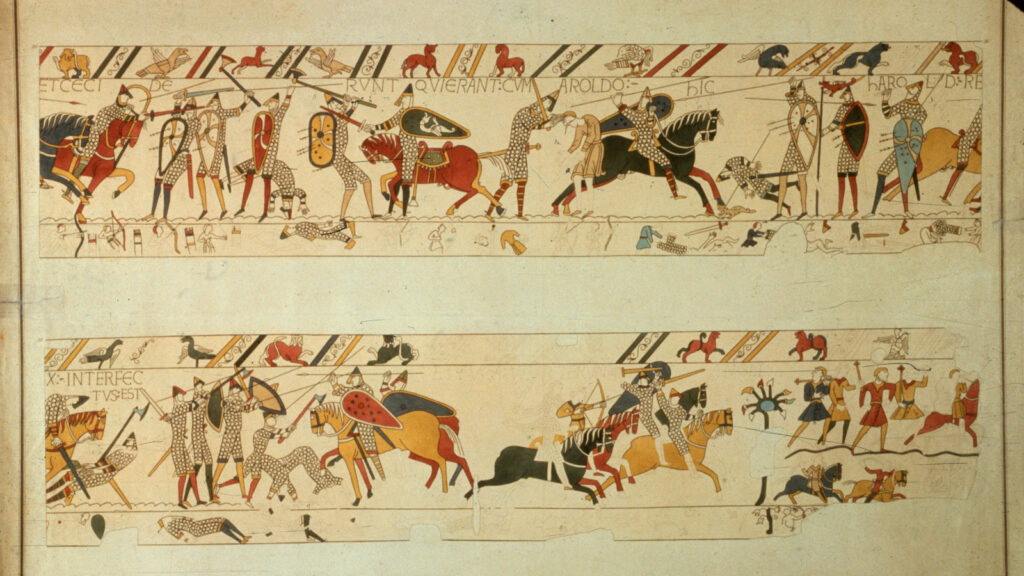 ETCECI DE RVNT QVIERANT:CVM AROLDO:- hIC hAROLD:RE
X:-INTERFEC
TVS:EST